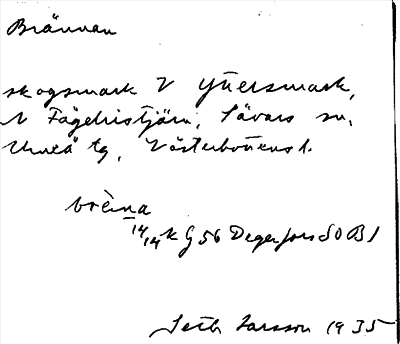 Brännan
skogsmark V Ytersmark,
N Fågelristjärn, Sävars sn,
Umeå tg, Västerbottens l.
brèna
14/14 K G 56 Degerfors SO B1
Seth Larsson 1935